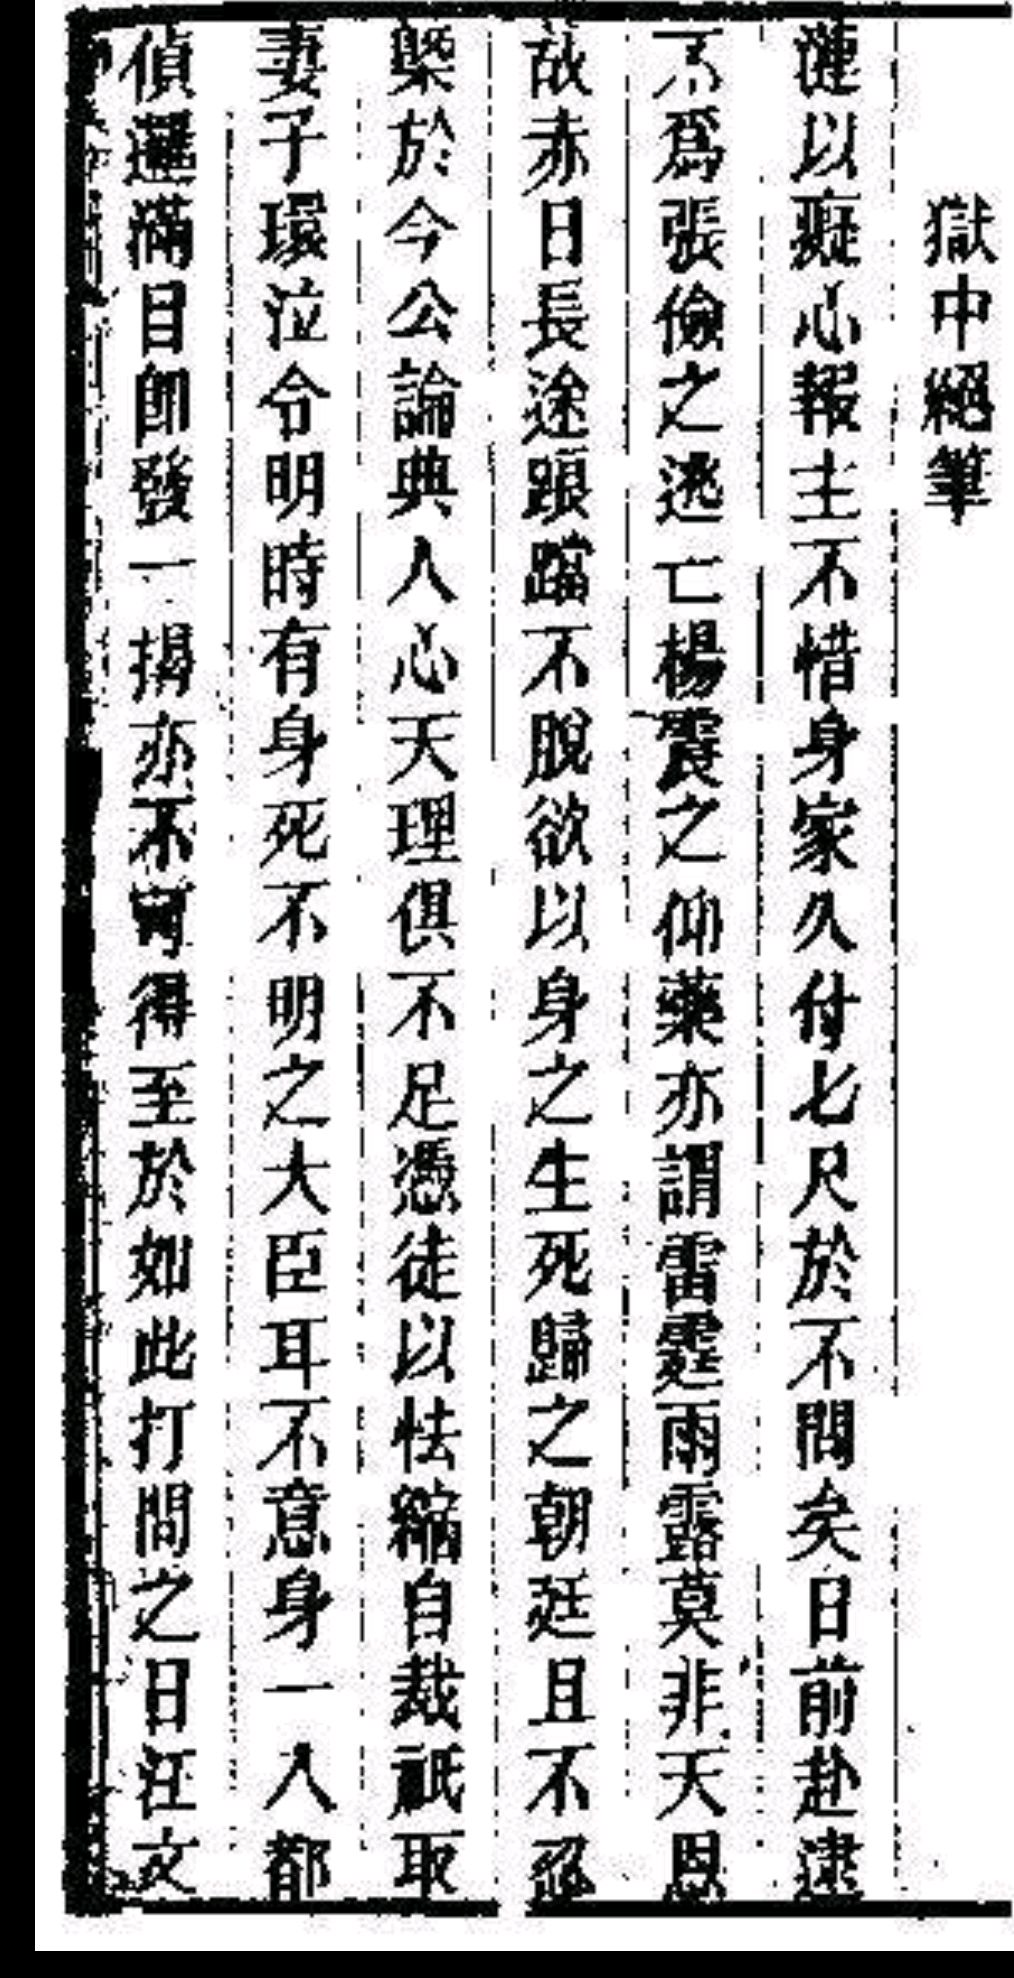 獄中絕筆
漣以癡心報主不惜身家久付七尺於不問矣日前赴逮
不爲張儉之逃亡楊震之仰藥亦謂雷霆雨露莫非天恩
故赤日長途踉蹡不脫欲以身之生死歸之朝廷且不忍
槩於今公論與人心天理俱不足憑徒以怯縮自裁祇取
妻子環泣令明時有身死不明之大臣耳不意身一入都
偵邏滿目卽發一揭亦不可得至於如此打問之日汪文